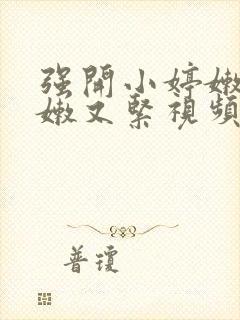 强開小婷嫩
嫩又緊視頻
普瓊